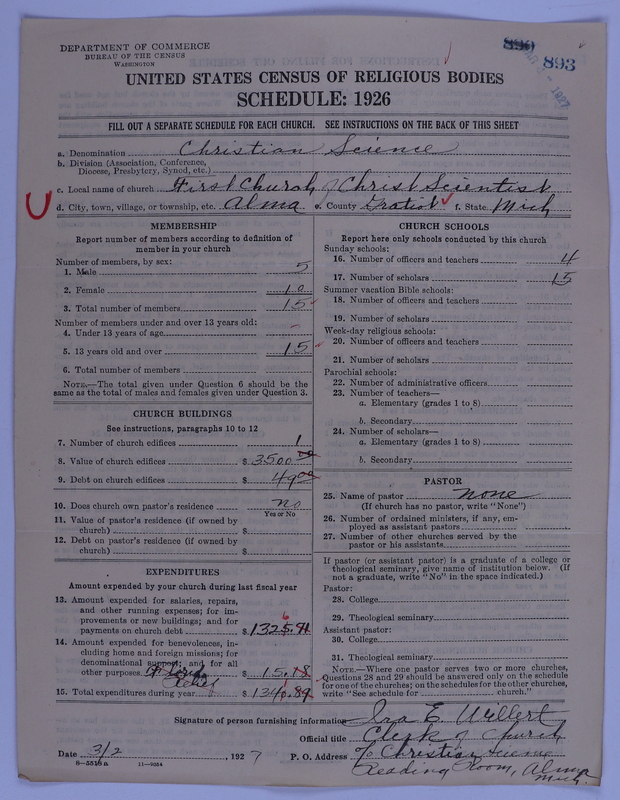 DEPARTMENT OF COMMERCE
BUREAU OF THE CENSUS
WASHINGTON
890
893
UNITED STATES CENSUS OF RELIGIOUS BODIES
SCHEDULE: 1926
FILL OUT A SEPARATE SCHEDULE FOR EACH CHURCH. SEE INSTRUCTIONS ON THE BACK OF THIS SHEET
a. Denomination Christian Science
b. Division (Association, Conference,
Diocese, Presbytery, Synod, etc.)
c. Local name of church First Church of Christ Scientist
d. City, town, village, or township, etc. Alma e. County Gratiot f. State Mich
MEMBERSHIP
Report number of members according to definition of
member in your church
Number of members, by sex:
1. Male 5
2. Female 10
3. Total number of members 15
Number of members under and over 13 years old:
4. Under 13 years of age -
5. 13 years old and over 15
6. Total number of members
NOTE.—The total given under Question 6 should be the
same as the total of males and females given under Question 3.
CHURCH BUILDINGS
See instructions, paragraphs 10 to 12
7. Number of church edifices 1
8. Value of church edifices $ 3500 00
9. Debt on church edifices $ 49 00
10. Does church own pastor's residence no
Yes or No
11. Value of pastor's residence (if owned by
church) $
12. Debt on pastor's residence (if owned by
church) $
EXPENDITURES
Amount expended by your church during last fiscal year
13. Amount expended for salaries, repairs,
and other running expenses; for im-
provements or new buildings; and for
payments on church debt $ 1325.71
6
14. Amount expended for benevolences, in-
cluding home and foreign missions; for
denominational support; and for all
other purposes. $ 15.18
15. Total expenditures during year $ 1340.89
CHURCH SCHOOLS
Report here only schools conducted by this church
Sunday schools:
16. Number of officers and teachers 4
17. Number of scholars 15
Summer vacation Bible schools:
18. Number of officers and teachers
19. Number of scholars
Week-day religious schools:
20. Number of officers and teachers
21. Number of scholars
Parochial schools:
22. Number of administrative officers
23. Number of teachers—
a. Elementary (grades 1 to 8)
b. Secondary
24. Number of scholars—
a. Elementary (grades 1 to 8)
b. Secondary
PASTOR
25. Name of pastor none
(If church has no pastor, write "None")
26. Number of ordained ministers, if any, em-
ployed as assistant pastors
27. Number of other churches served by the
pastor or his assistants
If pastor (or assistant pastor) is a graduate of a college or
theological seminary, give name of institution below. (If
not a graduate, write "No" in the space indicated.)
Pastor:
28. College
29. Theological seminary
Assistant pastor:
30. College
31. Theological seminary
NOTE.—Where one pastor serves two or more churches,
Questions 28 and 29 should be answered only on the schedule
for one of the churches; on the schedules for the other churches,
write "See schedule for church."
Signature of person furnishing information Ira E. Willert
Official title Clerk of Church
Date 3/2, 1927 P. O. Address % Christian Science
Reading Room, Alma
Mich.
8-5518a 11-9054